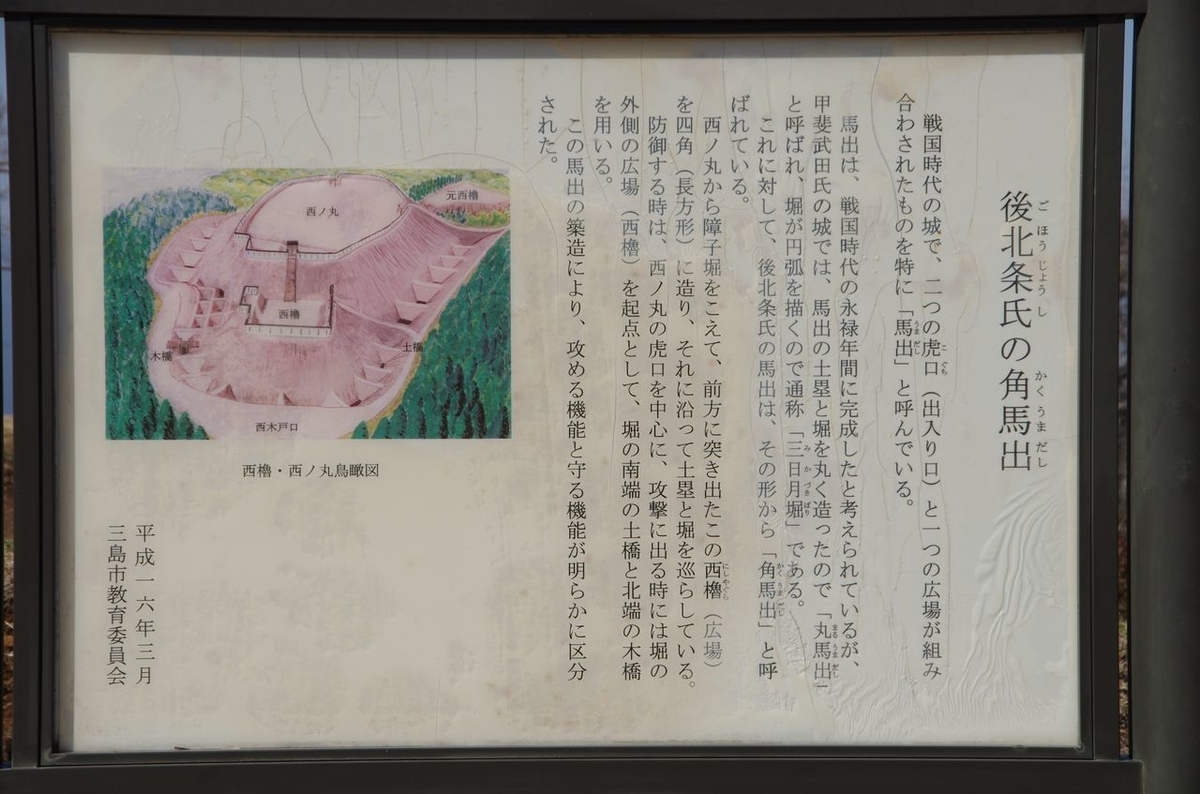 後北条氏の角馬出
ごほうじょうし かくうまだし
戦国時代の城で、二つの虎口（出入り口）と一つの広場が組み
こぐち
合わされたものを特に「馬出」と呼んでいる。
うまだし
馬出は、戦国時代の永禄年間に完成したと考えられているが、
甲斐武田氏の城では、馬出の土塁と堀を丸く造ったので「丸馬出」
まるうまだし
と呼ばれ、堀が円弧を描くので通称「三日月堀」である。
みかづきぼり
これに対して、後北条氏の馬出は、その形から「角馬出」と呼
かくうまだし
ばれている。
西ノ丸から障子堀をこえて、前方に突き出たこの西櫓（広場）
にしやぐら
を四角（長方形）に造り、それに沿って土塁と堀を巡らしている。
防御する時は、西ノ丸の虎口を中心に、攻撃に出る時には堀の
外側の広場（西櫓）を起点として、堀の南端の土橋と北端の木橋
を用いる。
この馬出の築造により、攻める機能と守る機能が明らかに区分
された。
元西櫓
西ノ丸
西櫓
木橋
土橋
西木戸口
西櫓・西ノ丸鳥瞰図
平成一六年三月
三島市教育委員会